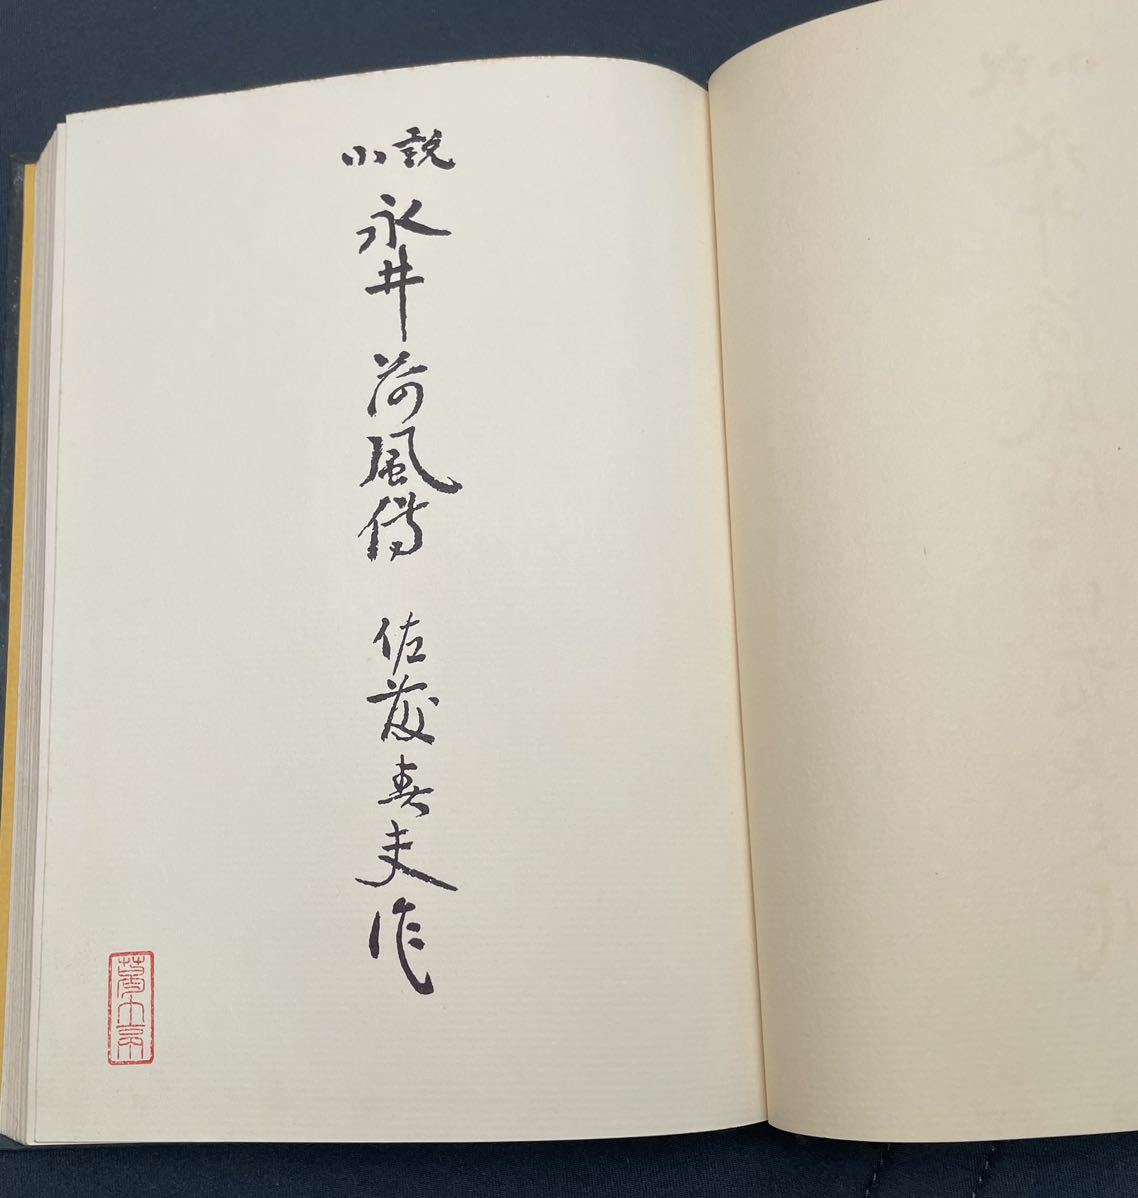 小説
永井荷風傳 佐藤春夫作